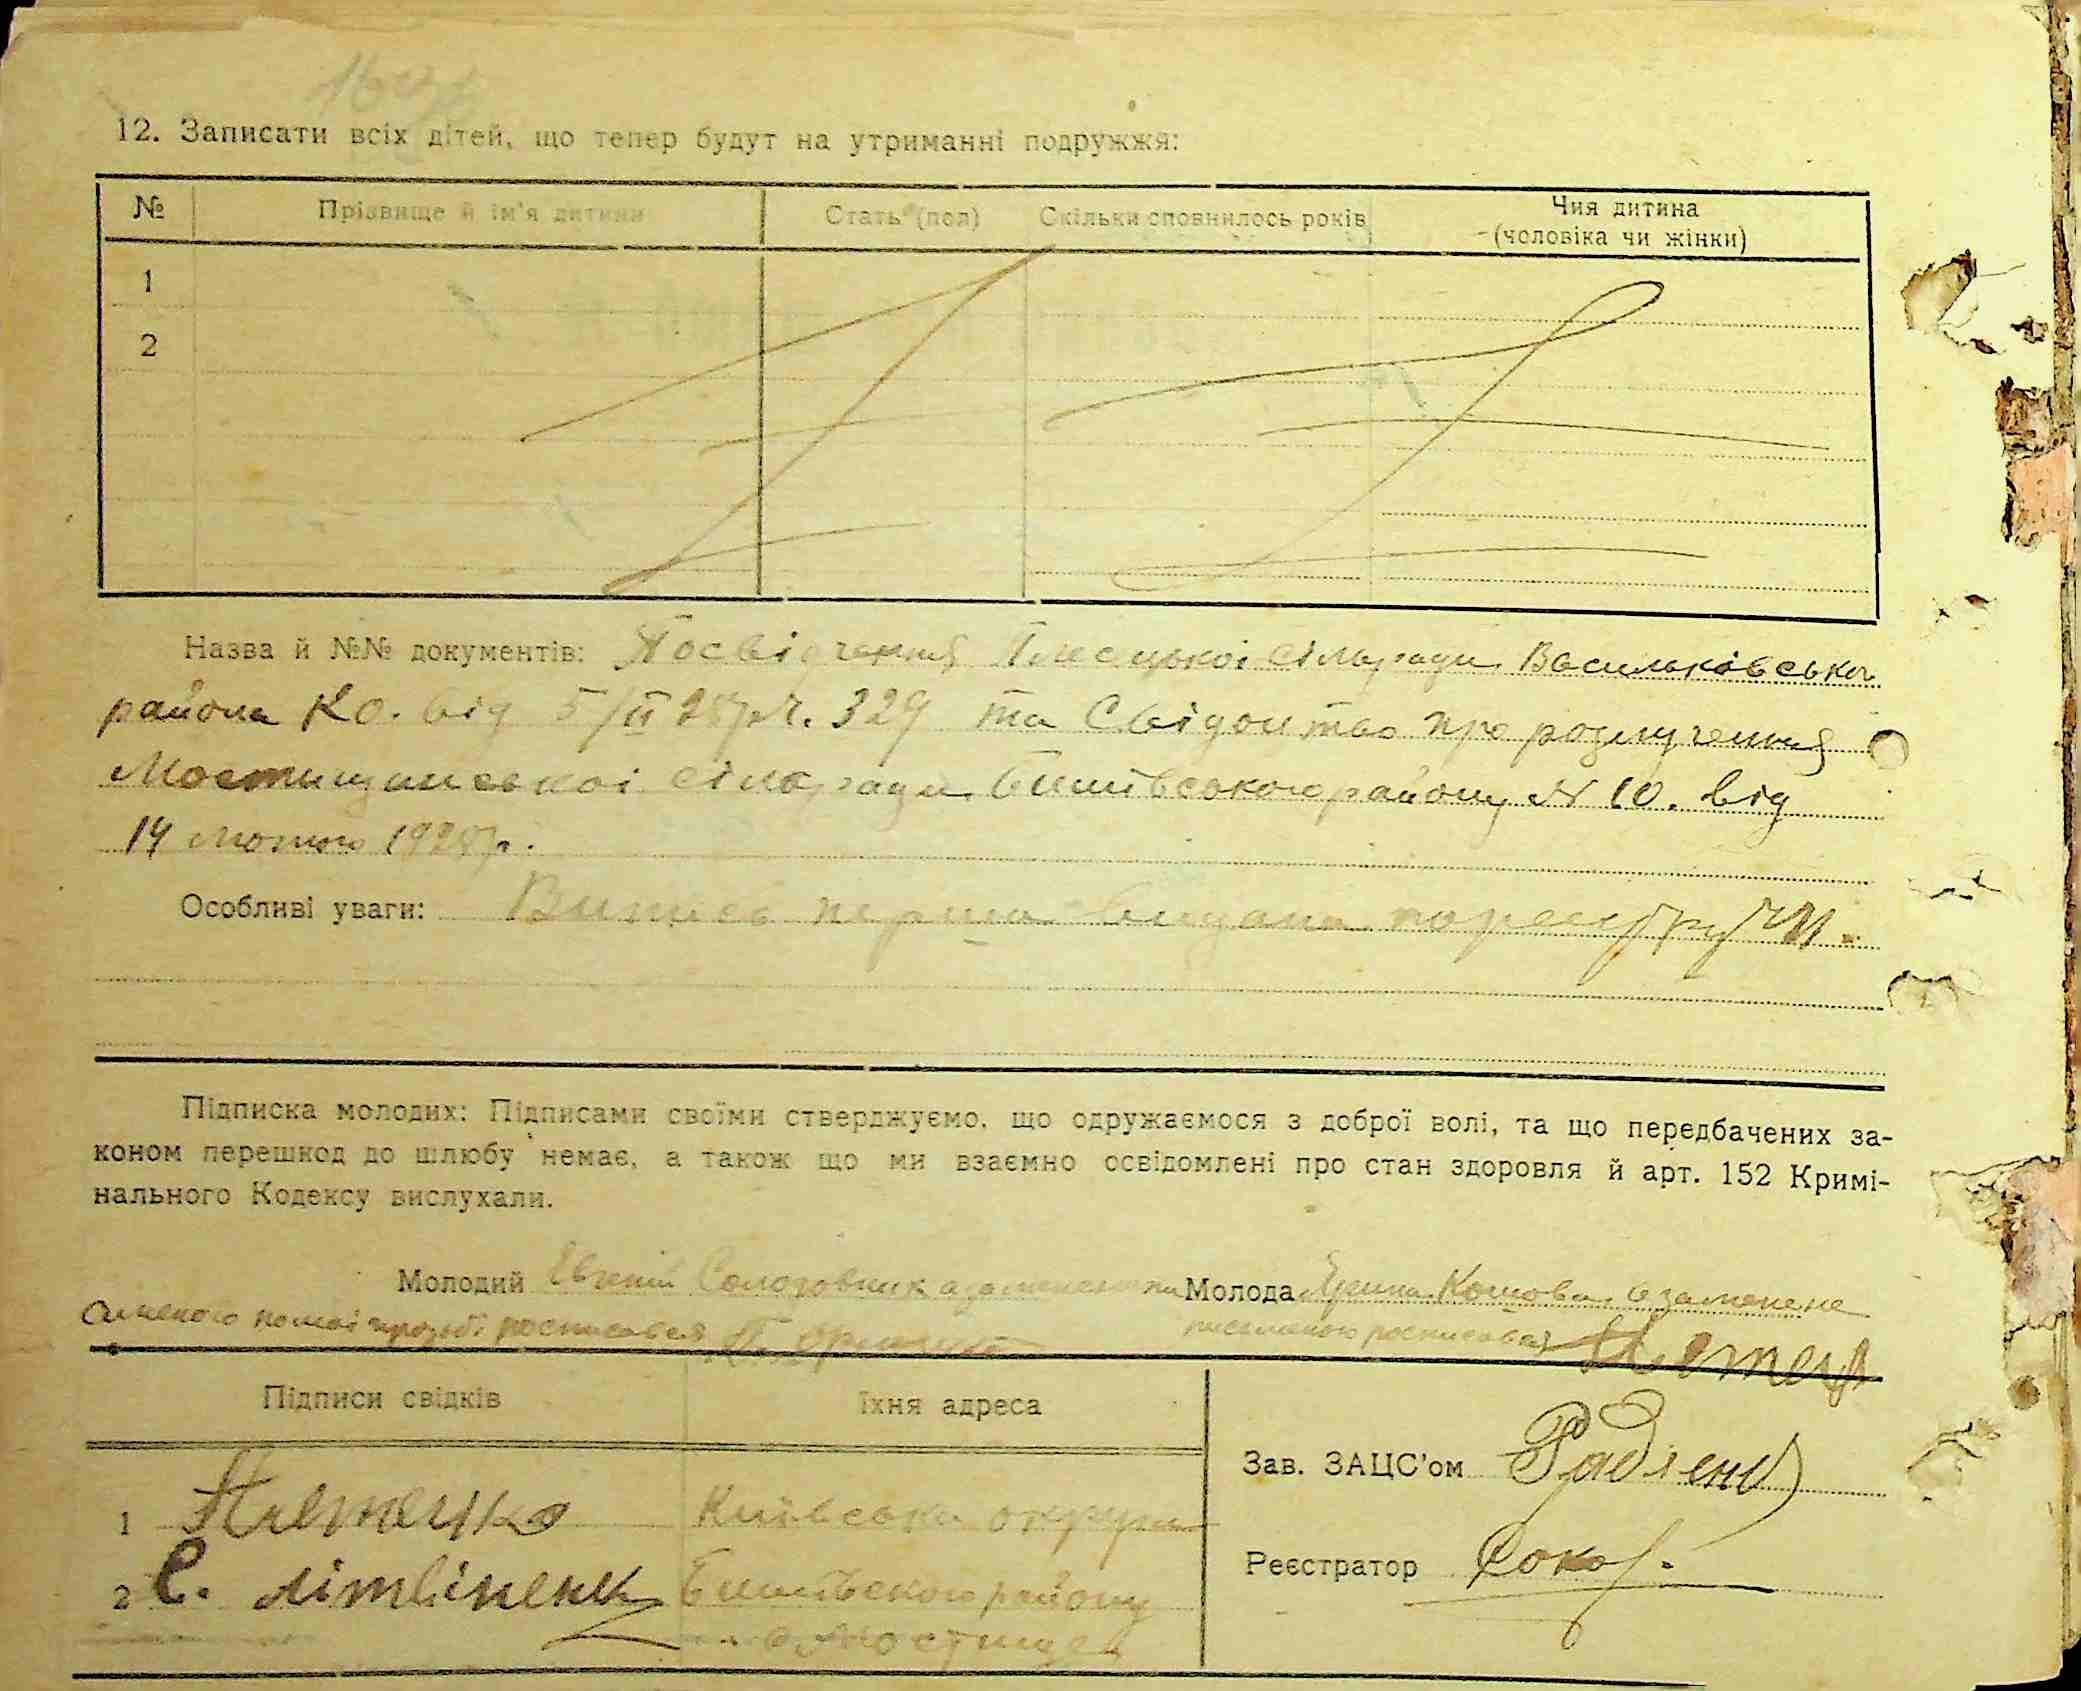 12. Записати всіх дітей, що тепер будут на утриманні подружжя:
№ Прізвище й ім'я дитини Стать (пол) Скільки сповнилось років Чия дитина
(чоловіка чи жінки)
1
2
Назва й №№ документів: Посвідчення Плесецької сільради Васильківсько
района КО. від 5/II 28 р. ч. 329 та Свідоцтво про розлучення
Мостищанської сільради Бишівського району N 10. від
14 лютого 1928 р.
Особливі уваги: Випись перша видана по реєстру ч 11.
Підписка молодих: Підписами своїми стверджуємо, що одружаємося з доброї волі, та що передбачених за-
коном перешкод до шлюбу немає, а також що ми взаємно освідомлені про стан здоровля й арт. 152 Кримі-
нального Кодексу вислухали.
Молодий Евгеній Сологовник а за Молода Ярина Кошова а за
росписався росписався
Підписи свідків їхня адреса
Зав. ЗАЦС'ом
1 Київська округа
Реєстратор
2 С. літвіненк Бишівського району
с. Мостище